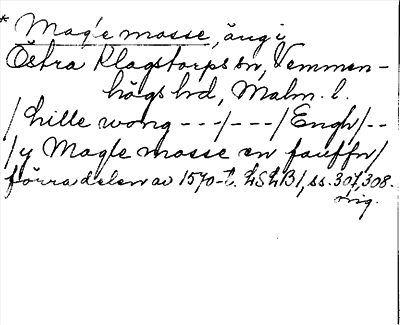 * Magle mosse, äng i
Östra Klagstorps sn, Vemmen-
högs hd, Malm. l.
/hille wong ---/---/Engh/--
/y Magle mosse en fauffn/
förra delen av 1570-t. LSLB1, ss. 307, 308.
orig.